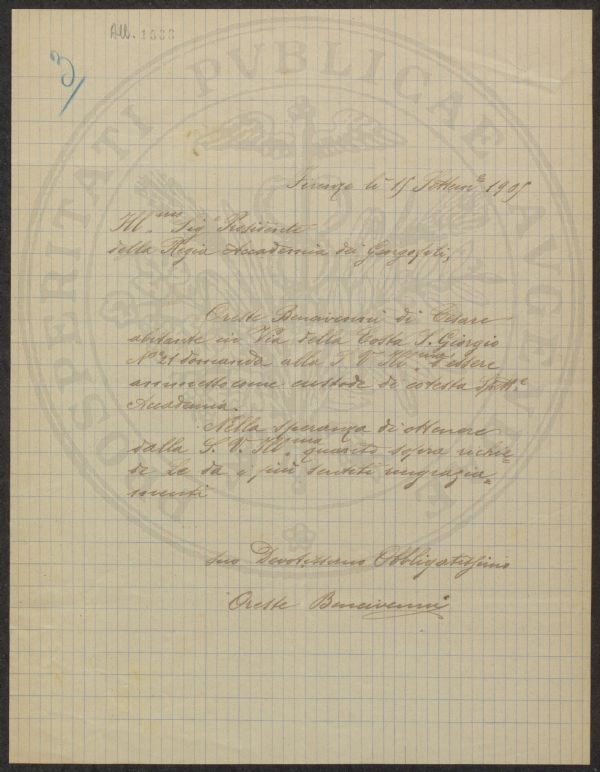 All. 1888
3
PROSPERITATI PVBLICAE AVGENDAE
Firenze li 15 Settem.e 1905
Ill.mo Sig.e Presidente
della Regia Accademia dei Georgofili,
Oreste Bencivenni di Cesare
abitante in Via della Costa S. Giorgio
No 21 domanda alla S. V. Ill.ma d'essere
ammesso come custode di cotesta Sp.
Accademia.
Nella speranza di ottenere
dalla S. V. Ill.ma quanto sopra richie=
de Le da i più sentiti ringrazia=
menti
Suo Devotissimo Obbligatissimo
Oreste Bencivenni